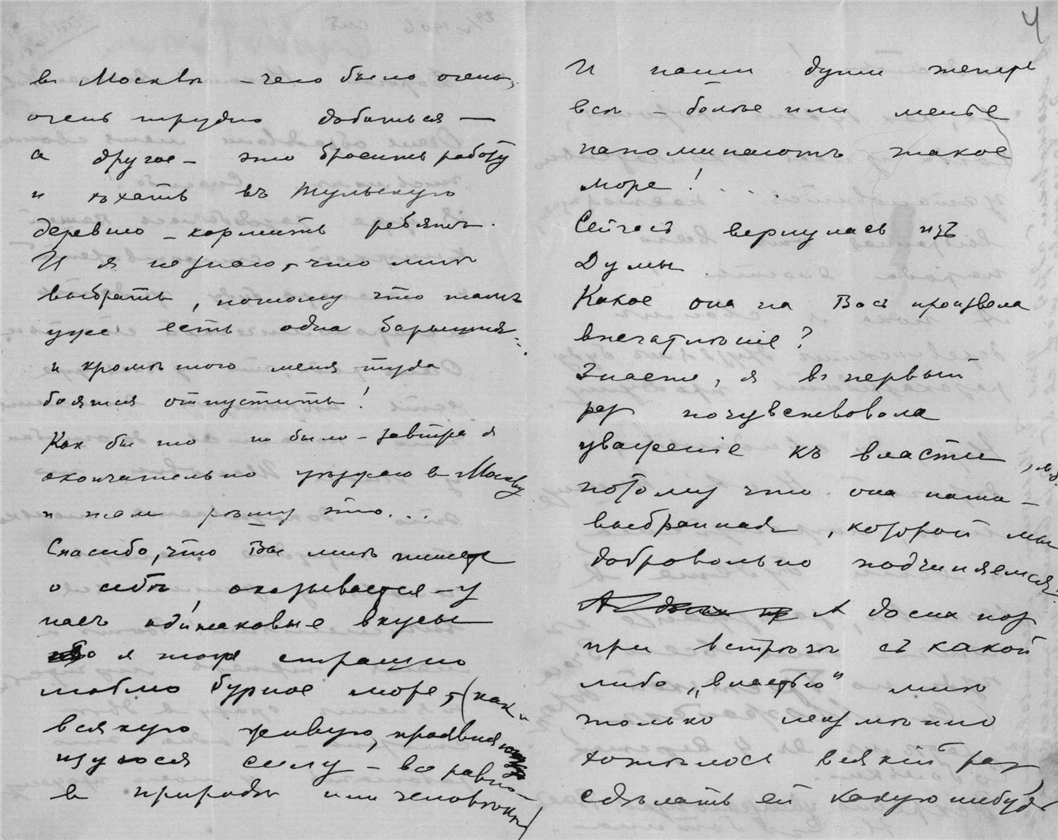 въ Москвѣ – чего было очень,
очень трудно добиться –
а другое – это бросить работу
и ѣхать въ Тульскую
деревню – кормить ребятъ.
И я не знаю, что мнѣ
выбрать, потому что тамъ
уже есть одна барышня
и кромѣ того меня туда
боятся отпустить!
Какъ бы то не было – завтра я
окончательно уѣзжаю въ Москву
и тамъ рѣшу это...
Спасибо, что Вы мнѣ пишете
о себѣ, оказывается – у
насъ одинаковые вкусы
я тоже страшно
люблю бурное море, (какъ и
всякую живую, проявляю-
щуюся силу – все равно
въ природѣ или человѣкѣ)
4
И наши души теперь
всѣ – болѣе или менѣе
напоминаютъ такое
море! . . .
Сейчасъ вернулась изъ
Думы.
Какое она на Васъ произвела
впечатлѣніе?
Знаете, я въ первый
разъ почувствовала
уваженіе къ власти,
потому что она наша –
выбранная, которой мы
добровольно подчиняемся.
А до сихъ поръ
при встрѣчѣ съ какой
либо „властью“ мнѣ
только неуминно
хотѣлось всякій разъ
сдѣлать ей какую нибудь